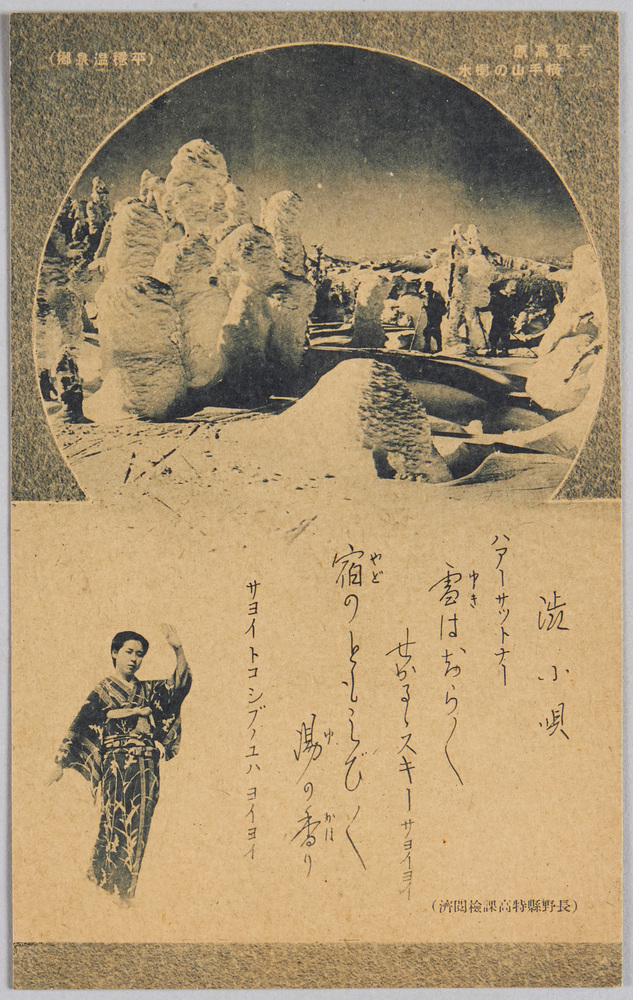 志賀高原
横手山の樹氷
(平穩温泉郷)
澁小唄
ハアーサツトナー
雪はちら〱
せかるゝスキー サヨイヨイ
宿のともしび
湯の香り
サヨイトコシブノユハ ヨイヨイ
(長野縣特高課檢閲濟)